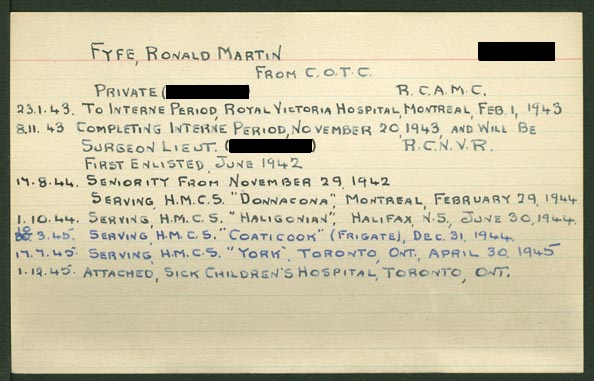 FYFE, RONALD MARTIN
FROM C.O.T.C.
PRIVATE ( R.C.A.M.C.
23.1.43. TO INTERNE PERIOD, ROYAL VICTORIA HOSPITAL, MONTREAL, FEB. 1, 1943
8.11.43 COMPLETING INTERNE PERIOD, NOVEMBER 20, 1943, AND WILL BE
SURGEON LIEUT. ( ) R.C.N.V.R.
FIRST ENLISTED, JUNE 1942
17.8.44. SENIORITY FROM NOVEMBER 29, 1942
SERVING, H.M.C.S. "DONNACONA", MONTREAL, FEBRUARY 29, 1944
1.10.44. SERVING, H.M.C.S. "HALIGONIAN", HALIFAX, N.S., JUNE 30, 1944.
10 3.45. SERVING, H.M.C.S. "COATICOOK" (FRIGATE), DEC. 31, 1944.
17.7.45. SERVING, H.M.C.S. "YORK", TORONTO, ONT., APRIL 30, 1945
1.12.45. ATTACHED, SICK CHILDREN'S HOSPITAL, TORONTO, ONT.